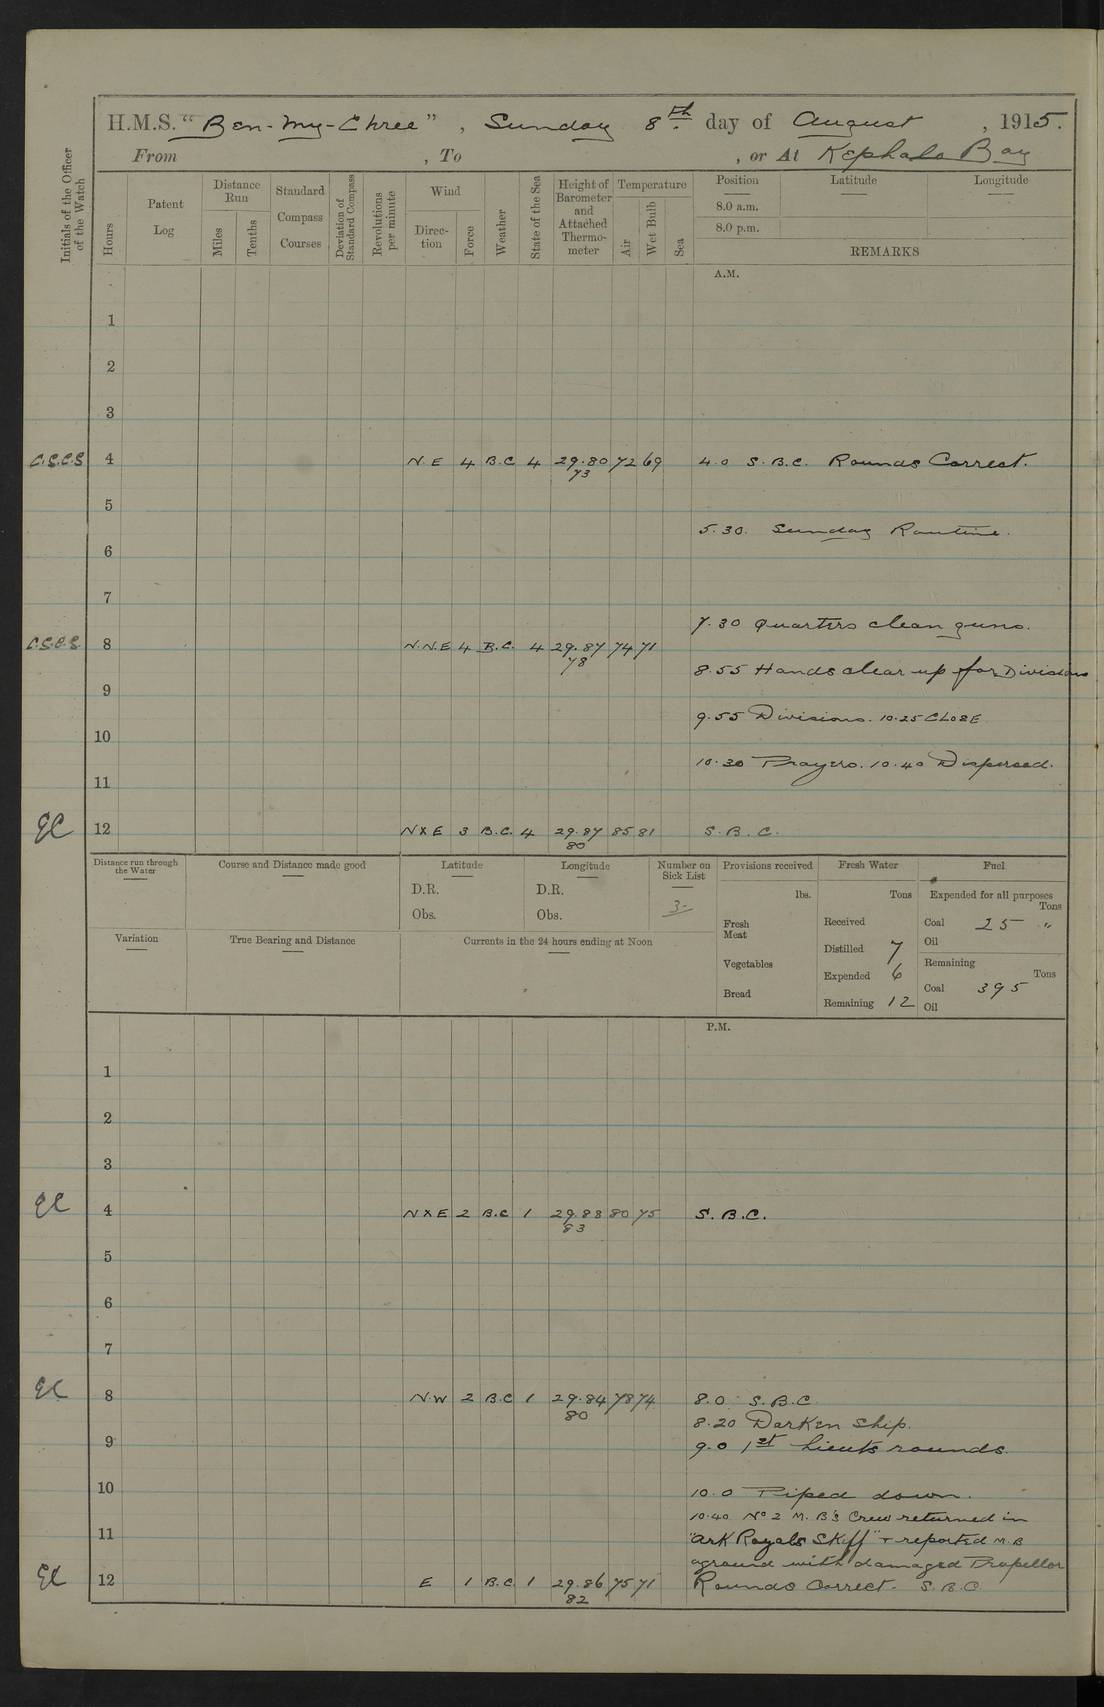 H.M.S. "Ben-My-Chree", Sunday 8th. day of August, 1915.
From , To , or At Kephalo Bay
Initials of the Officer of the Watch
Hours
Patent Log
Distance Run
Miles
Tenths
Standard Compass Courses
Deviation of Standard Compass
Revolutions per minute
Wind
Direction
Force
Weather
State of the Sea
Height of Barometer and Attached Thermometer
Temperature
Air
Wet Bulb
Sea
Position Latitude Longitude
8.0 a.m.
8.0 p.m.
REMARKS
A.M.
1
2
3
C.S.C.S 4 N.E 4 B.C 4 29.80 72 69 4.0 S.B.C. Rounds Correct.
73
5
5.30. Sunday Routine.
6
7
7.30 Quarters clean guns.
C.S.C.S. 8 N.N.E 4 B.C. 4 29.87 74 71
78
8.55 Hands clear up for Divisions
9
9.55 Divisions. 10.25 CLOSE
10
10.30 Prayers. 10.40 Dispersed.
11
12 N X E 3 B.C. 4 29.87 85 81 S.B.C.
80
Distance run through the Water
Course and Distance made good
Latitude
D.R.
Obs.
Longitude
D.R.
Obs.
Number on Sick List
3-
Provisions received
lbs.
Fresh Meat
Vegetables
Bread
Fresh Water
Tons
Received
Distilled 7
Expended 6
Remaining 12
Fuel
Expended for all purposes
Tons
Coal 25 "
Oil
Remaining
Tons
Coal 395
Oil
Variation
True Bearing and Distance
Currents in the 24 hours ending at Noon
P.M.
1
2
3
4 N X E 2 B.C 1 29.83 80 75 S.B.C.
83
5
6
7
8 N.W 2 B.C 1 29.84 78 74 8.0 S.B.C
80
8.20 Darken Ship.
9
9.0 1st Lieuts rounds.
10
10.0 Piped down.
10.40 No 2 M.B's Crew returned in
11
"Ark Royals Skiff" + reported M.B
aground with damaged Propellor
12 E 1 B.C. 1 29.86 75 71 Rounds Correct. S.B.C.
82